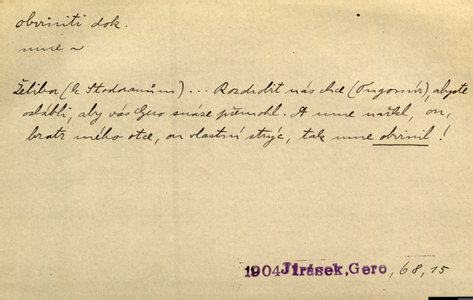 obviniti dok.
mne ~
Želibor (k Stodoranům) ... Rozdrobit nás chce (Tugomír), abyste
oslábli, aby vás Gero snáze přemohl. A mne nařkl, on,
bratr mého otce, on vlastní strýc, tak mne obvinil!
1904 Jirásek, Gero, 68, 15